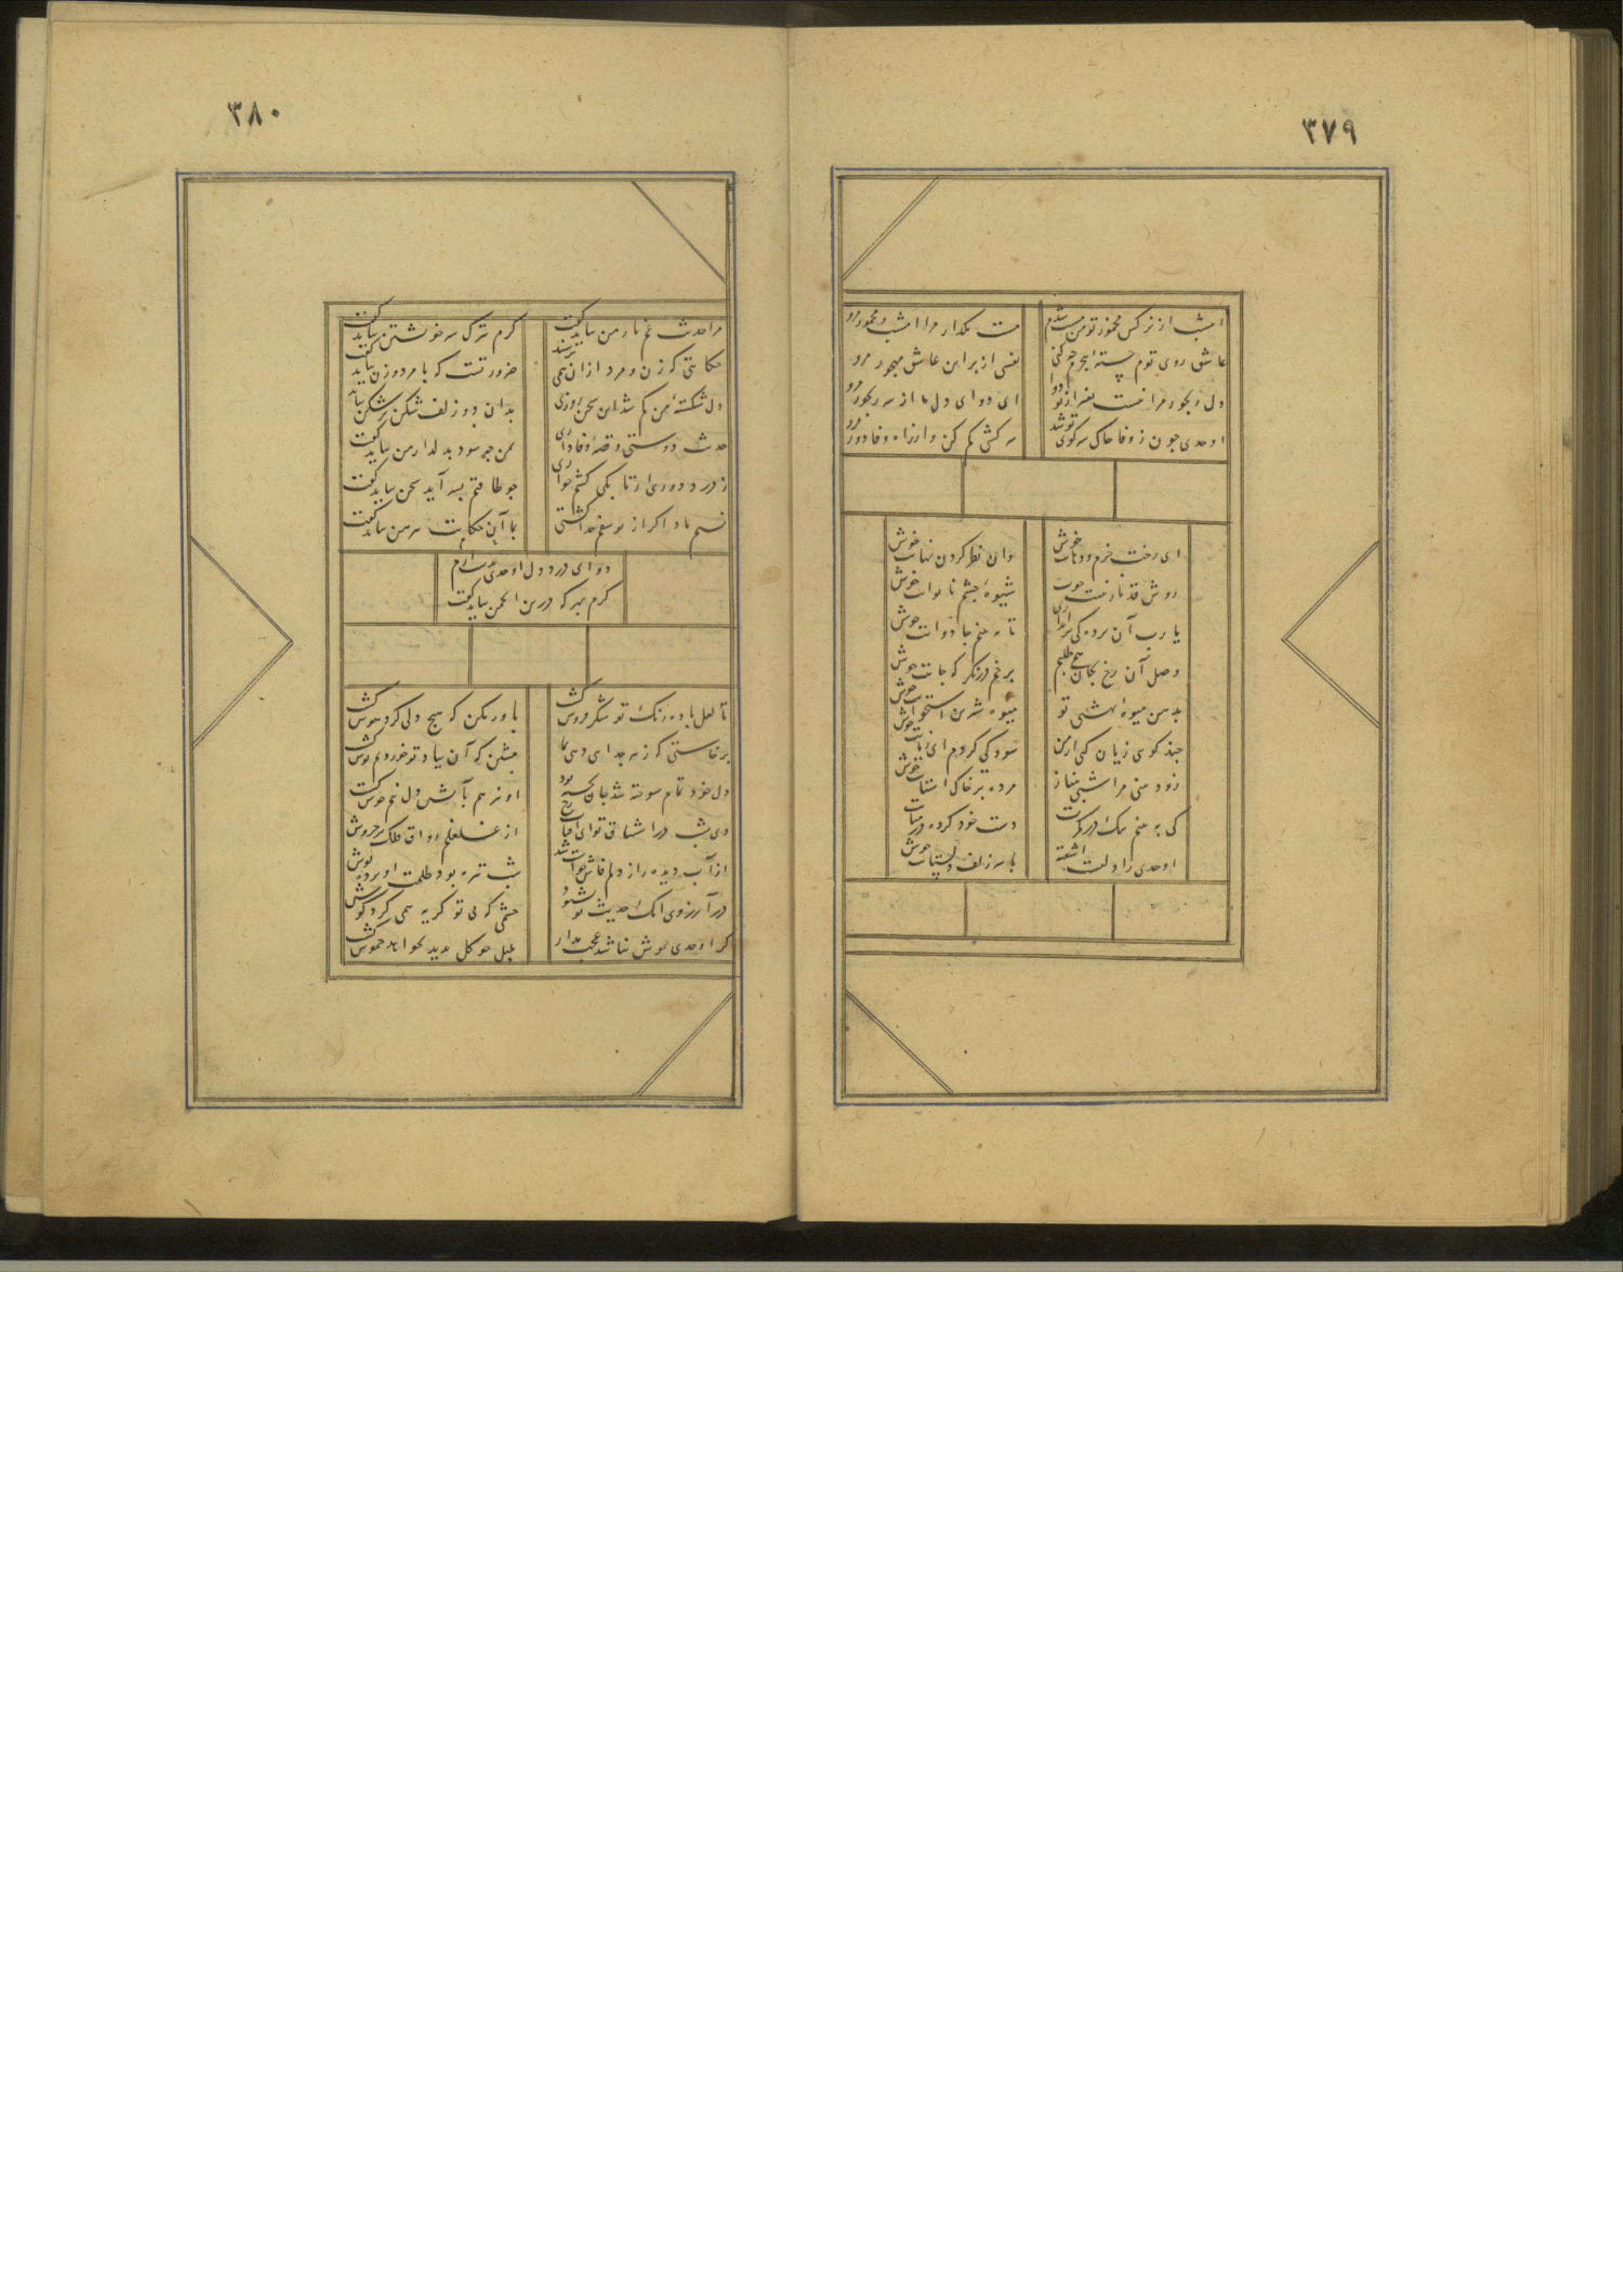 ۳۷۹
امشب از نرکس مخمور تو من مست شدم
مست مکدار مرا امشب و مخمور مرو
عاشق روی توم خسته هجرم چه کنی
نفسی از بر این عاشق مهجور مرو
دل رنجور مرا نیست بغیر از تو دوا
ای دوای دل ما از سر رنجور مرو
اوحدی چون ز وفا خاک سر کوی تو شد
سرکشی کم کن و از راه وفا دور مرو
ای رخت خرم و دهانت خوش
وان نظر کردن نهانت خوش
روش قد نازنینت خوب
شیوهٔ چشم ناتوانت خوش
یا رب آن پرده کی براندازی
تا ببینم جاودانت خوش
وصل آن رخ بجان همی طلبم
برخم درنکر که جانت خوش
بدمن میوهٔ بهشتی تو
میوه شیرین استخوانت خوش
چند کوی زیان کنی از من
سود کی کردم ای زیانت خوش
زود بینی مرا شبی بنیاز
مرده بر خاک آستانت خوش
کی ببینم سک در کرت
دست خود کرده در میانت
اوحدی را دلست آشفته
با سر زلف دلستانت خوش
۳۸۰
مرا حدیث غم یار من بباید کفت
کرم ترک سر خویشتن بباید کفت
حکایتی که زن و مرد از ان همی ترسند
ضرورتست که با مرد و زن بباید کفت
دل شکستهٔ من کم شد این سخن روزی
بدان دو زلف شکن بر شکن بباید
حدیث دوستی و قصهٔ وفاداری
بمن چه سود بدلدار من بباید کفت
ز درد دوری او تا بکی کشم خواری
چو طاقتم بسر آید سخن بباید کفت
نسیم باد اکر از یوسفم خدا کشتی
بیا این حکایت پیرهن بباید کفت
دوای درد دل اوحدی بیارم
کرم بهرکه درین انجمن بباید کفت
تا لعل باده رنک تو شکر فروش کشت
باور مکن که هیچ دلی کرد هوش کشت
برخاستی که زهر جدای دهی بما
منشین که آن بیاد تو خوردیم نوش کشت
دل خود تمام سوخته شد جان که پخته بود
او نیز هم بآتش دل نیم جوش کشت
دی شب در اشتیاق تو ای آفتاب رخ
از غلغلم رواق فلک پر خروش
از آب دیده راز دلم فاش خواست شد
شب تیره بود و ظلمت او پرده پوش
در آرزوی انک حدیث تو بشنود
چشمی که بی تو کریه همی کرد کوش
کر اوحدی بهوش نباشد عجب مدار
بلبل چو کل بدید نخواهد خموش کشت